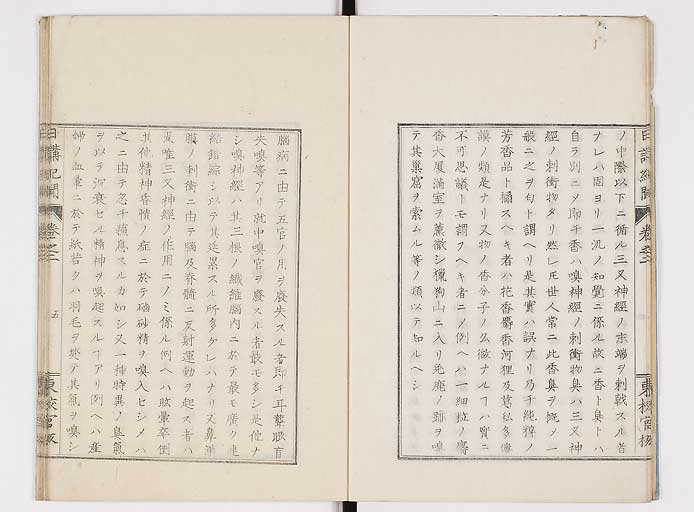 ノ中際以下ニ循ル三叉神經ノ末端ヲ刺戟スル者
ナレハ固ヨリ一汎ノ知覺ニ係ル故ニ香ト臭トハ
自ラ別ニメ即チ香ハ嗅神經ノ刺衝物臭ハ三叉神
經ノ刺衝物タリ然レ𪜈世人常ニ此香臭ヲ概メ一
般ニ之ヲ匂ト謂ヘリ是其實ハ誤ナリ乃チ純粹ノ
芳香品ト稱スヘキ者ハ花香麝香河狸及葛私多僂
謨ノ類是ナリ又物ノ香分子ノ幺微ナルヿハ實ニ
不可思議トモ謂フヘキ者ニメ例ヘハ一細粒ノ麝
香大厦滿室ヲ薰徹シ獵狗山ニ入リ兎鹿ノ跡ヲ嗅
テ其巢窟ヲ索ムル等ノ類以テ知ルヘシ
日講紀聞 卷之二
腦病ニ由テ五官ノ用ヲ廢失スル者即チ耳聾眼盲
失嗅等アリ就中嗅官ヲ廢スル者最モ多シ是他ナ
シ嗅神經ハ其三根ノ纖維腦内ニ於テ最モ廣ク連
結錯綜シ以テ其延累スル所多ケレハナリ又鼻
ノ刺衝ニ由テ腦及脊髓ニ反射運動ヲ起ス者ハ
是唯三叉神經ノ作用ニノミ係ル例ヘハ眩暈卒倒
其他精神昏憒ノ症ニ於テ硇砂精ヲ嗅入セシノハ
之ニ由テ忽チ喘息スルカ如シ又一種特異ノ臭氣
ヲ以テ沉衰セル精神ヲ喚起スルヿアリ例ヘハ産
婦ノ血暈ニ於テ紙撚タハ羽毛ヲ焚テ其氣ヲ嗅シ
日講紀聞 卷之二 五 東校官版